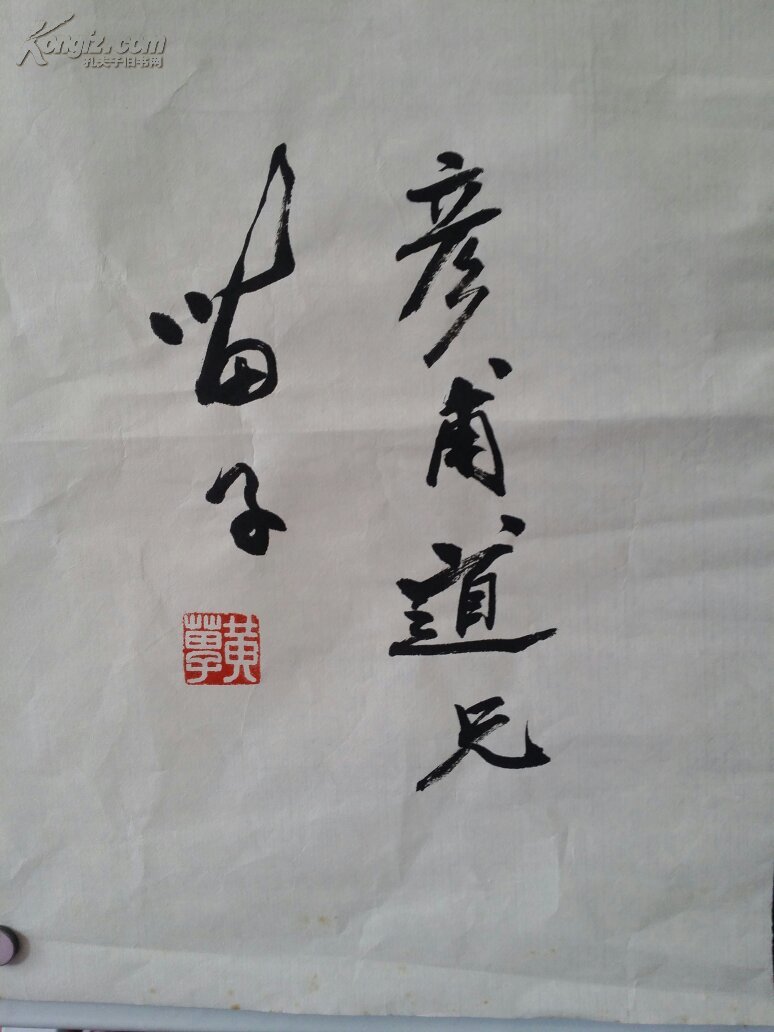 彦甫道兄
苗子
黄
Kongfz.com
孔夫子旧书网